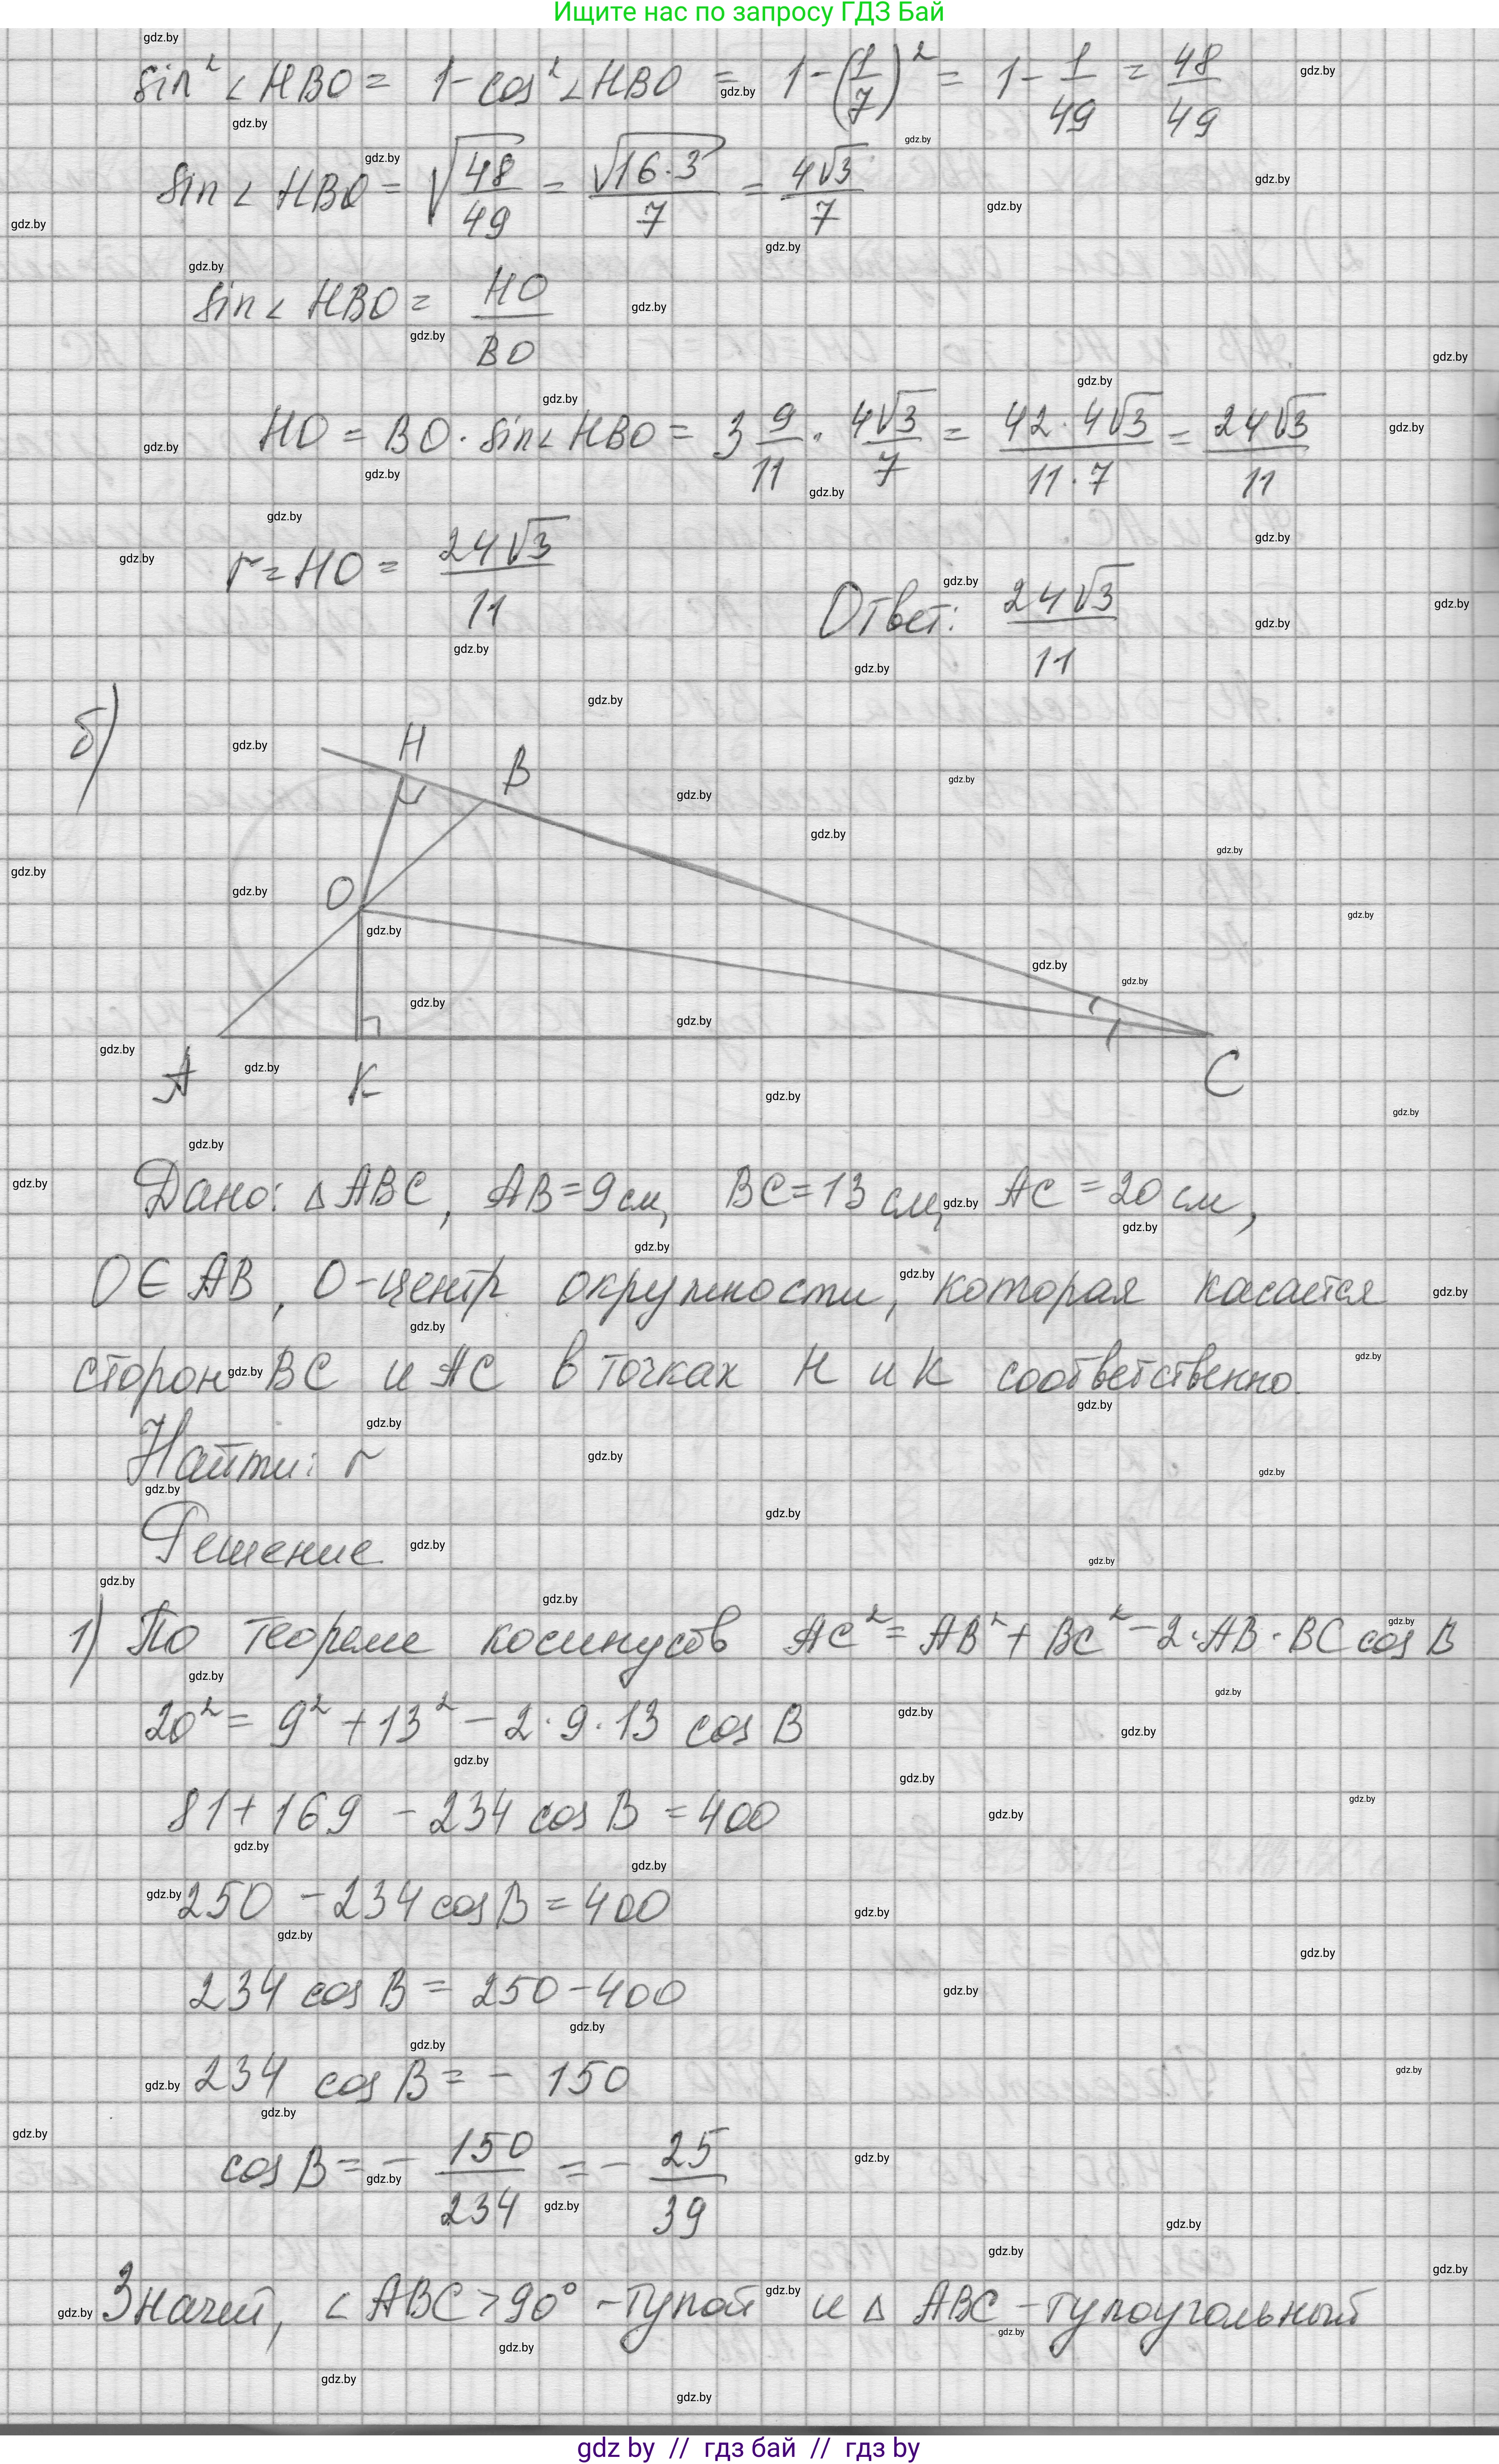 Ищите нас по запросу ГДЗ Бай
sin² ∠ HBO = 1 - cos² ∠ HBO = 1 - (1/7)² = 1 - 1/49 = 48/49
sin ∠ HBO = √(48/49) = √(16·3)/7 = 4√3/7
sin ∠ HBO = HO/BO
HO = BO · sin ∠ HBO = 3 9/11 · 4√3/7 = 42·4√3/11·7 = 24√3/11
r = HO = 24√3/11
Ответ: 24√3/11
б)
H
B
O
A
K
C
Дано: △ ABC, AB = 9 см, BC = 13 см, AC = 20 см,
O ∈ AB, O - центр окружности, которая касается
сторон BC и AC в точках H и K соответственно.
Найти: r
Решение
1) По теореме косинусов AC² = AB² + BC² - 2·AB·BC cos B
20² = 9² + 13² - 2·9·13 cos B
81 + 169 - 234 cos B = 400
250 - 234 cos B = 400
234 cos B = 250 - 400
234 cos B = - 150
cos B = - 150/234 = - 25/39
Значит, ∠ ABC > 90° - тупой и △ ABC - тупоугольный
gdz by // гдз бай // гдз by